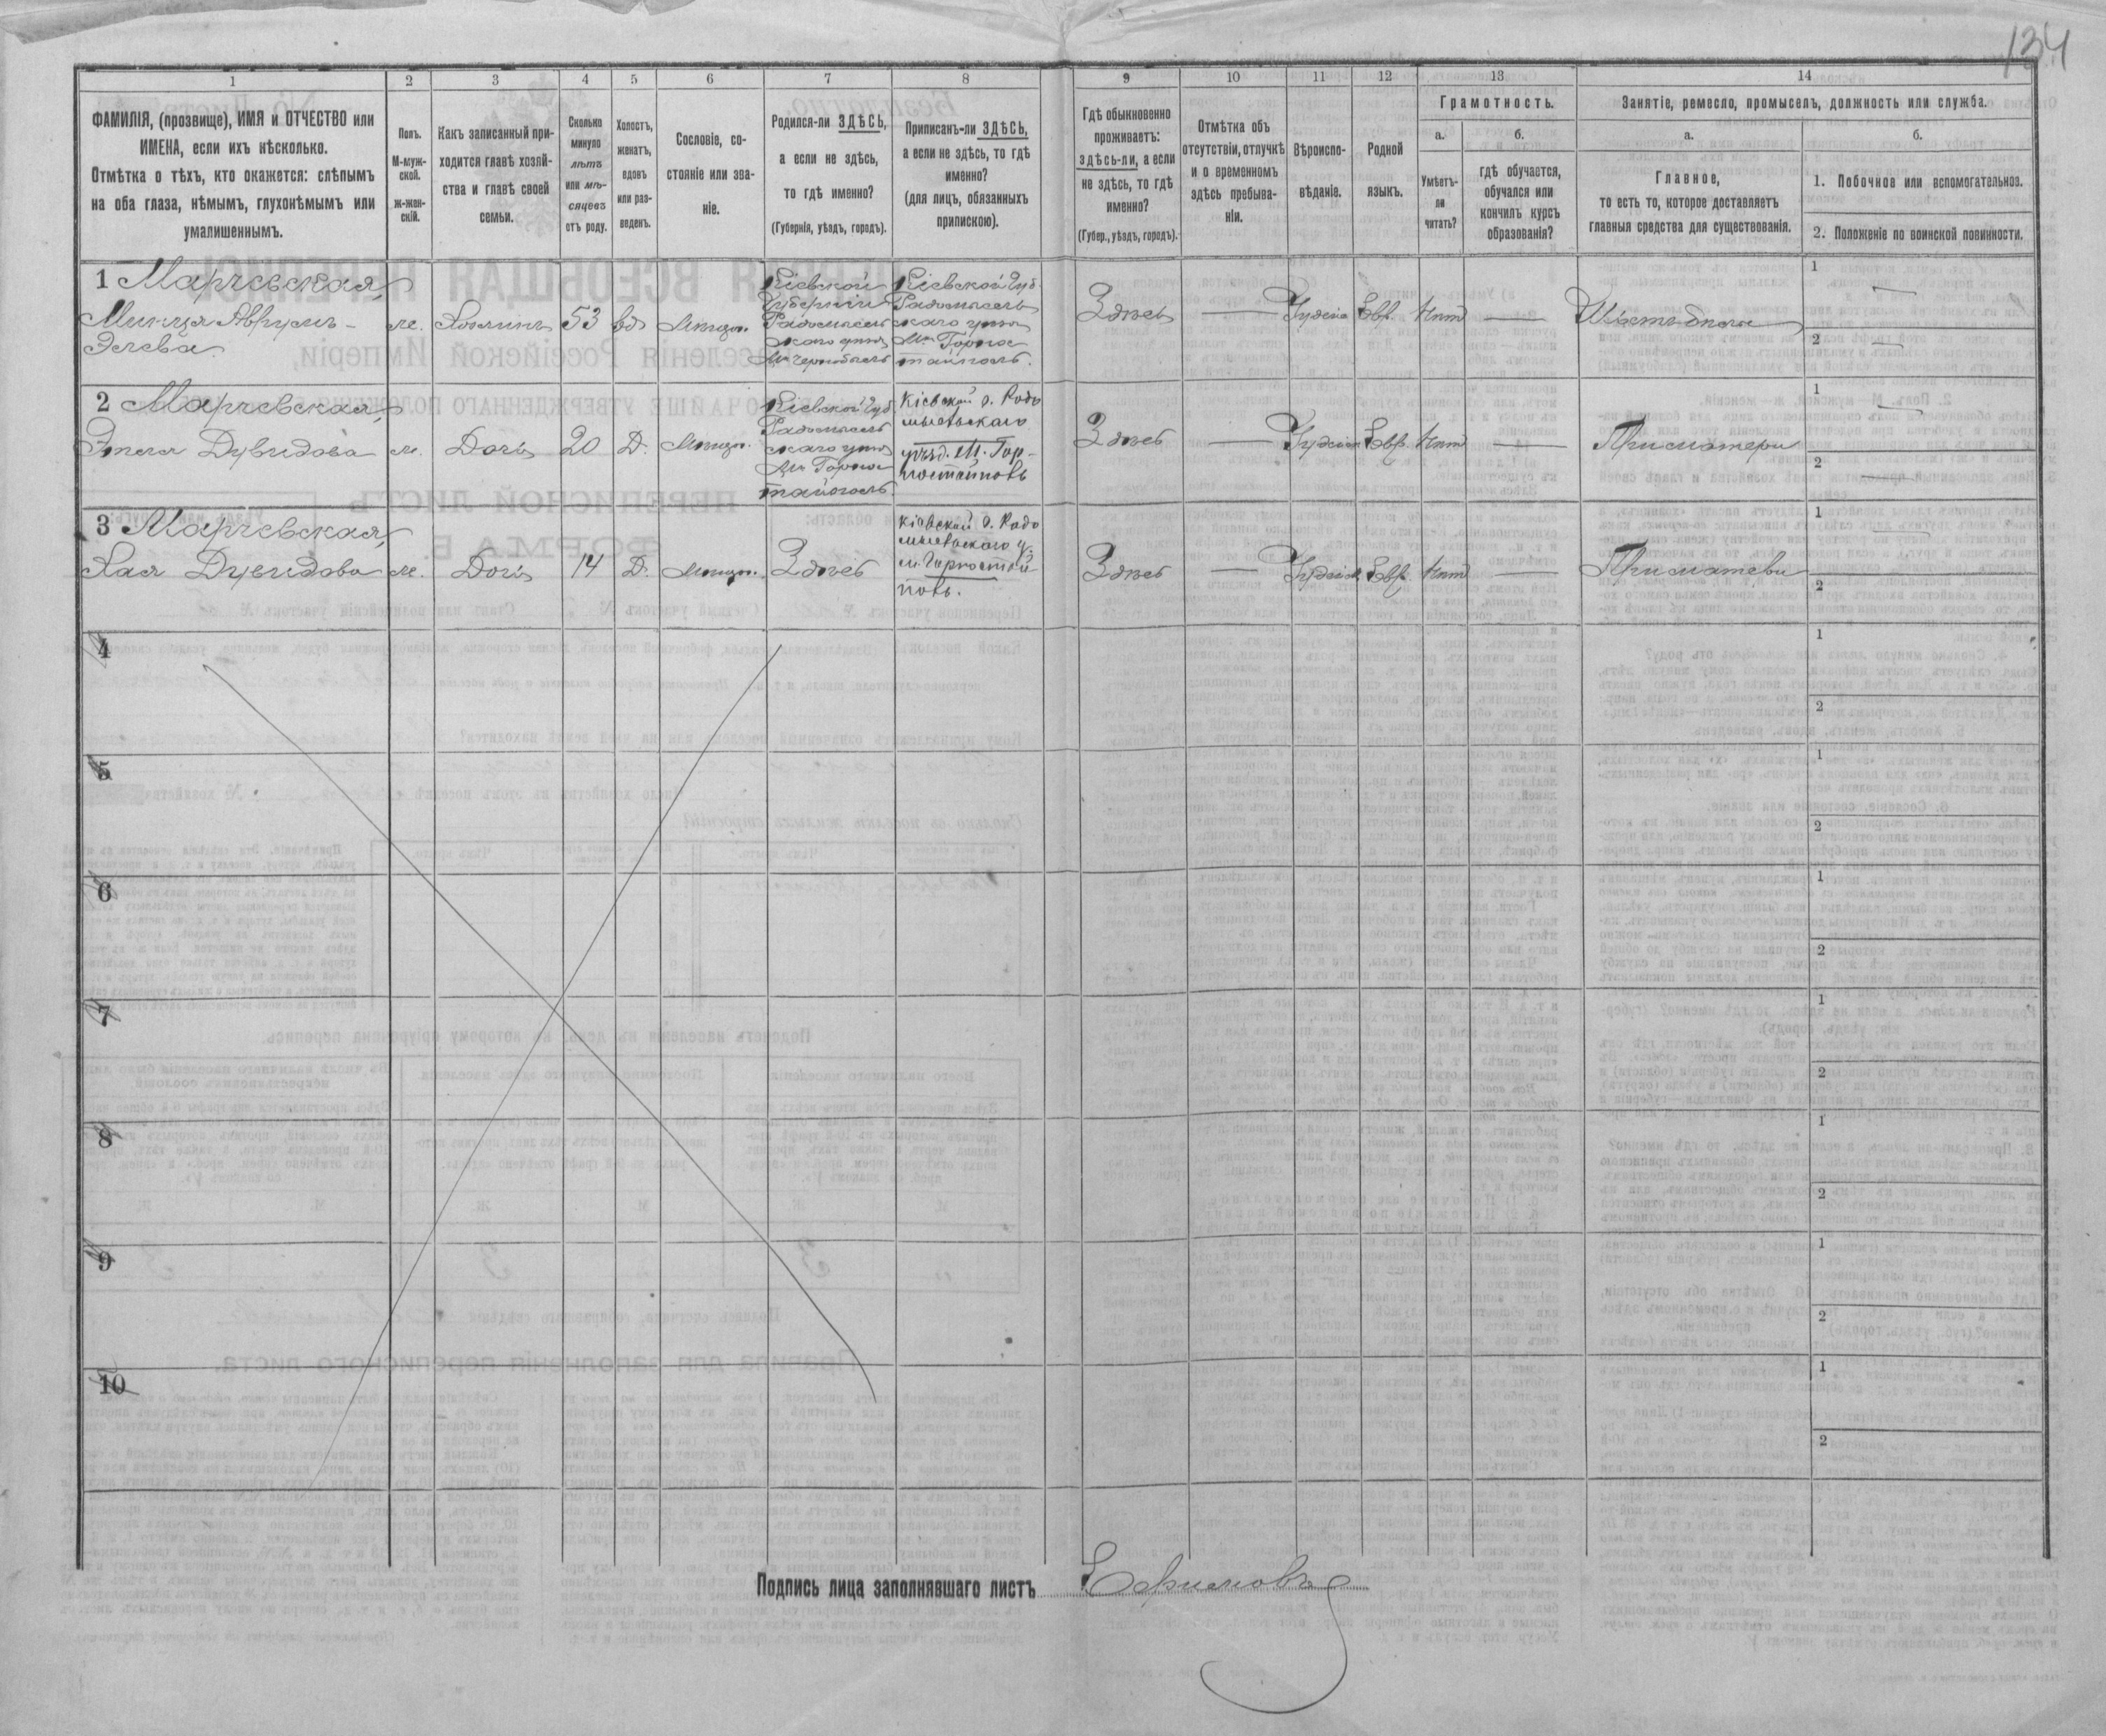 134
1 2 3 4 5 6 7 8 9 10 11 12 13 14
ФАМИЛІЯ, (прозвище), ИМЯ и ОТЧЕСТВО или
ИМЕНА, если ихъ нѣсколько.
Отмѣтка о тѣхъ, кто окажется: слѣпымъ
на оба глаза, нѣмымъ, глухонѣмымъ или
умалишеннымъ.
Полъ.
М-муж-
ской.
ж-жен-
скій.
Какъ записанный при-
ходится главѣ хозяй-
ства и главѣ своей
семьи.
Сколько
минуло
лѣтъ
или мѣ-
сяцевъ
отъ роду.
Холостъ,
женатъ,
вдовъ
или раз-
веденъ.
Сословіе, со-
стояніе или зва-
ніе.
Родился-ли ЗДѢСЬ,
а если не здѣсь,
то гдѣ именно?
(Губернія, уѣздъ, городъ).
Приписанъ-ли ЗДѢСЬ,
а если не здѣсь, то гдѣ
именно?
(для лицъ, обязанныхъ
припискою).
Гдѣ обыкновенно
проживаетъ:
здѣсь-ли, а если
не здѣсь, то гдѣ
именно?
(Губер., уѣздъ, городъ).
Отмѣтка объ
отсутствіи, отлучкѣ
и о временномъ
здѣсь пребыва-
ніи.
Вѣроиспо-
вѣданіе.
Родной
языкъ.
Грамотность.
а.
Умѣетъ-
ли
читать?
б.
гдѣ обучается,
обучался или
кончилъ курсъ
образованія?
Занятіе, ремесло, промыселъ, должность или служба.
а.
Главное,
то есть то, которое доставляетъ
главныя средства для существованія.
б.
1. Побочное или вспомогательное.
2. Положеніе по воинской повинности.
1 Марчевская,
Минця Аврумъ-
Элева
53 вд
Кіевской
Губерніи
Радомысль
скаго уѣзд
М. Чернобыль
Кіевской Губ.
Радомысль
скаго уѣзд
М. Горно
стайполь.
Здѣсь — Іудейск Евр. Нѣт —
1 —
2 —
2 Марчевская,
Этля Дувидова
Дочь 20 Д. Мѣщан.
Кіевской Губ
Радомысль
скаго уѣзд
М. Горно
стайполь
Кіевской г. Радо
мысльскаго
уѣзд. М. Гор-
ностайповь
Здѣсь — Іудейск Евр. Нѣт —
При матери
1 —
2 —
3 Марчевская,
Хая Дувидова
Дочь 14 Д. Мѣщан. Здѣсь
Кіевской г. Радо
мысльскаго у.
м. Горностай
повь.
Здѣсь — Іудейск Евр. Нѣт —
При матери
1 —
2 —
4
1
2
5
1
2
6
1
2
7
1
2
8
1
2
9
1
2
10
1
2
Подпись лица заполнявшаго листъ Ефимовъ